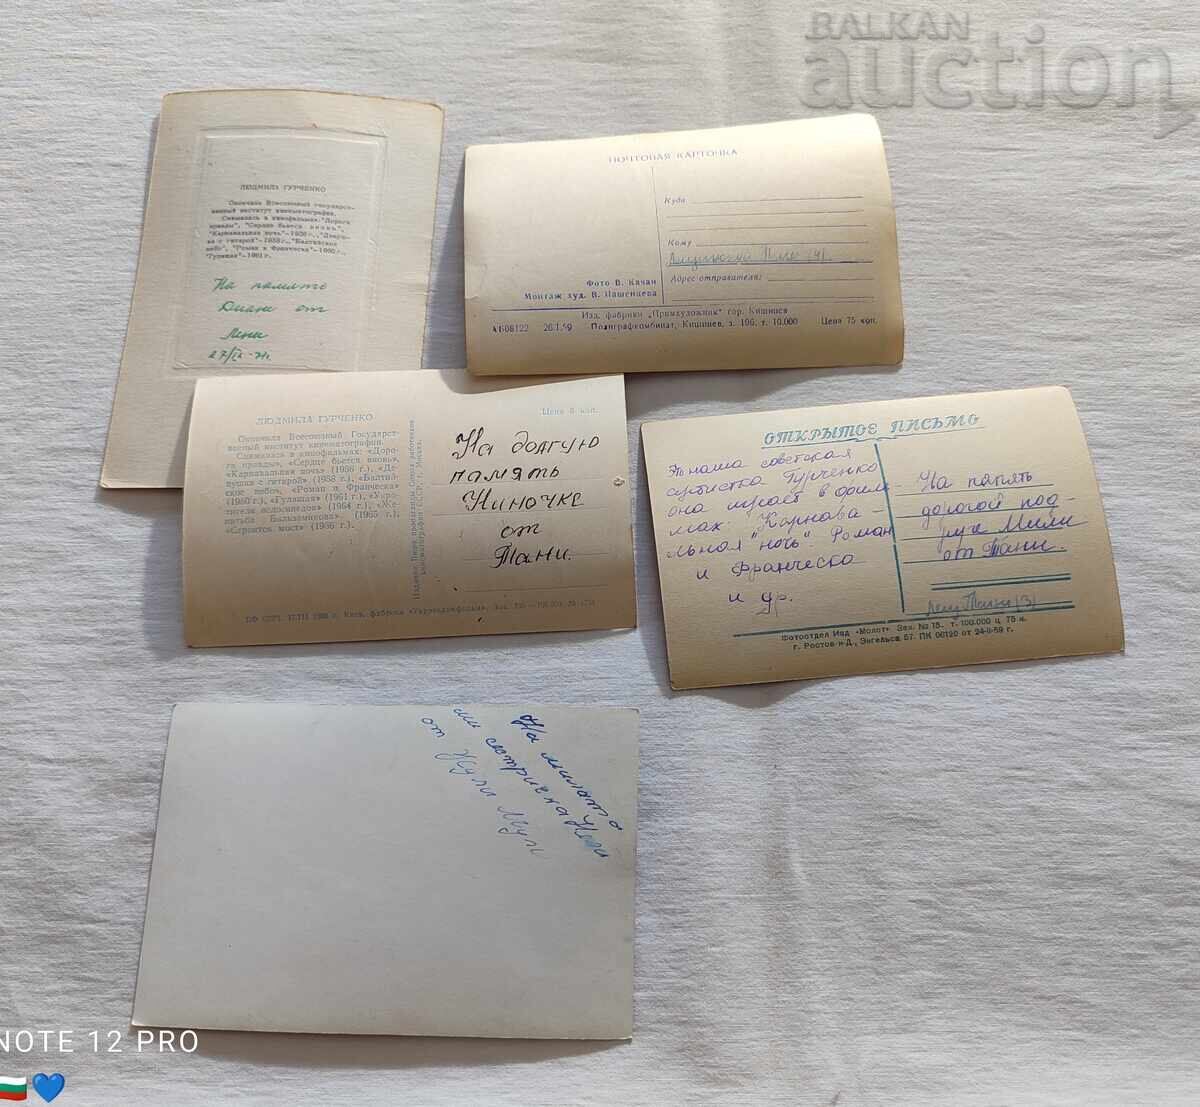 BALKAN
auction
ЛЮДМИЛА ГУРЧЕНКО
Окончила Всесоюзный государст-
венный институт кинематографии.
Снималась в кинофильмах: "Дорога
правды", "Сердце бьется вновь",
"Карнавальная ночь"-1956 г., "Девуш-
ка с гитарой"-1958 г., "Балтийское
небо", "Роман и Франческа"-1960 г.,
"Гулящая"-1961 г.
На память
от
Лени
ПОЧТОВАЯ КАРТОЧКА
Куда
Кому
Адрес отправителя:
Фото В. Качан
Монтаж худ. В. Пашенцева
Изд. фабрики „Примхудожник" гор. Кишинев
АБ08122 26.I.59 Полиграфкомбинат, Кишинев, з. 106, т. 10.000 Цена 75 коп.
ЛЮДМИЛА ГУРЧЕНКО
Окончила Всесоюзный Государст-
венный институт кинематографии.
Снималась в кинофильмах: «Доро-
га правды», «Сердце бьется вновь»,
«Карнавальная ночь» (1956 г.), «Де-
вушка с гитарой» (1958 г.), «Балтий-
ское небо», «Роман и Франческа»
(1960 г.), «Гулящая» (1961 г.), «Укро-
тители велосипедов» (1964 г.), «Же-
нитьба Бальзаминова» (1965 г.),
«Строится мост» (1966 г.).
Цена 8 коп.
На долгую
память
Ниночке
от
Тани.
ОТКРЫТОЕ ПИСЬМО
наша советская
артистка Гурченко
она играет в филь-
мах: "Карнава-
льная "ночь". Роман
и Франческа
и др.
На память
дорогой под-
руге Мили
от Тани.
Фотоотдел Изд «Молот» Зак. № 15. т. 100.000 ц 75 к.
г. Ростов-н-Д., Энгельса 57. ПК 06120 от 24-II-59 г.
На милата
ми сестричка
от
NOTE 12 PRO